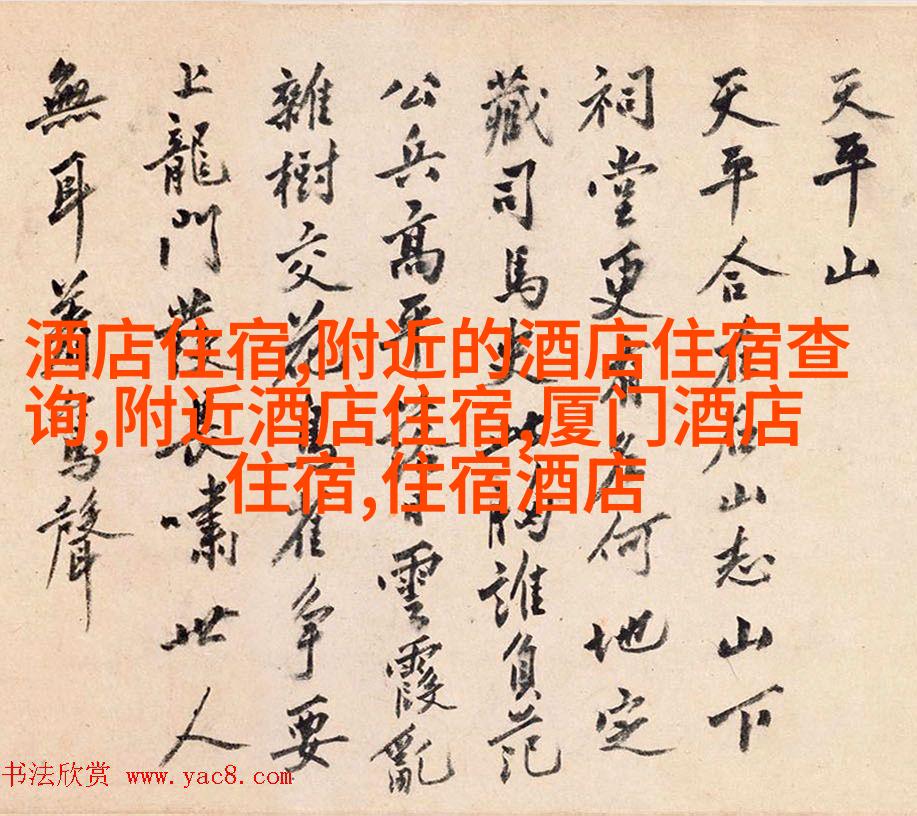 天平山
天平合山志山下
祠堂更肅名何地定
藏司馬史此胸誰負范
公兵高平日雲霞亂
雜樹交花鳥雀爭要
上龍門發長嘯世人
無耳聲
酒店住宿,附近的酒店住宿查
询,附近酒店住宿,厦门酒店
住宿,住宿酒店
书法欣赏 www.yac8.com